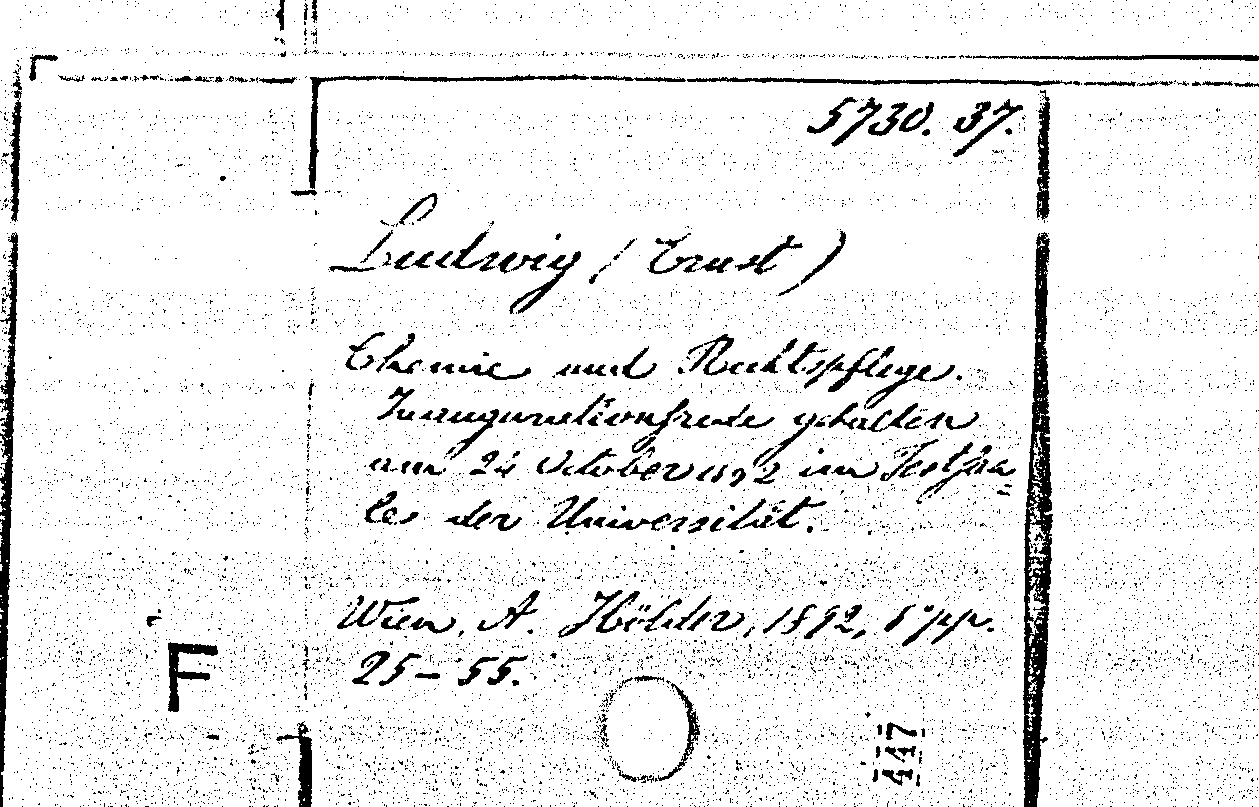 5730. 37.
Ludwig (Ernst)
Chemie und Rechtspflege.
Inaugurationsrede gehalten
am 24 October 1892 im Festsaa=
le der Universität.
Wien, A. Hölder, 1892, 8° pp.
25-55.
F
447